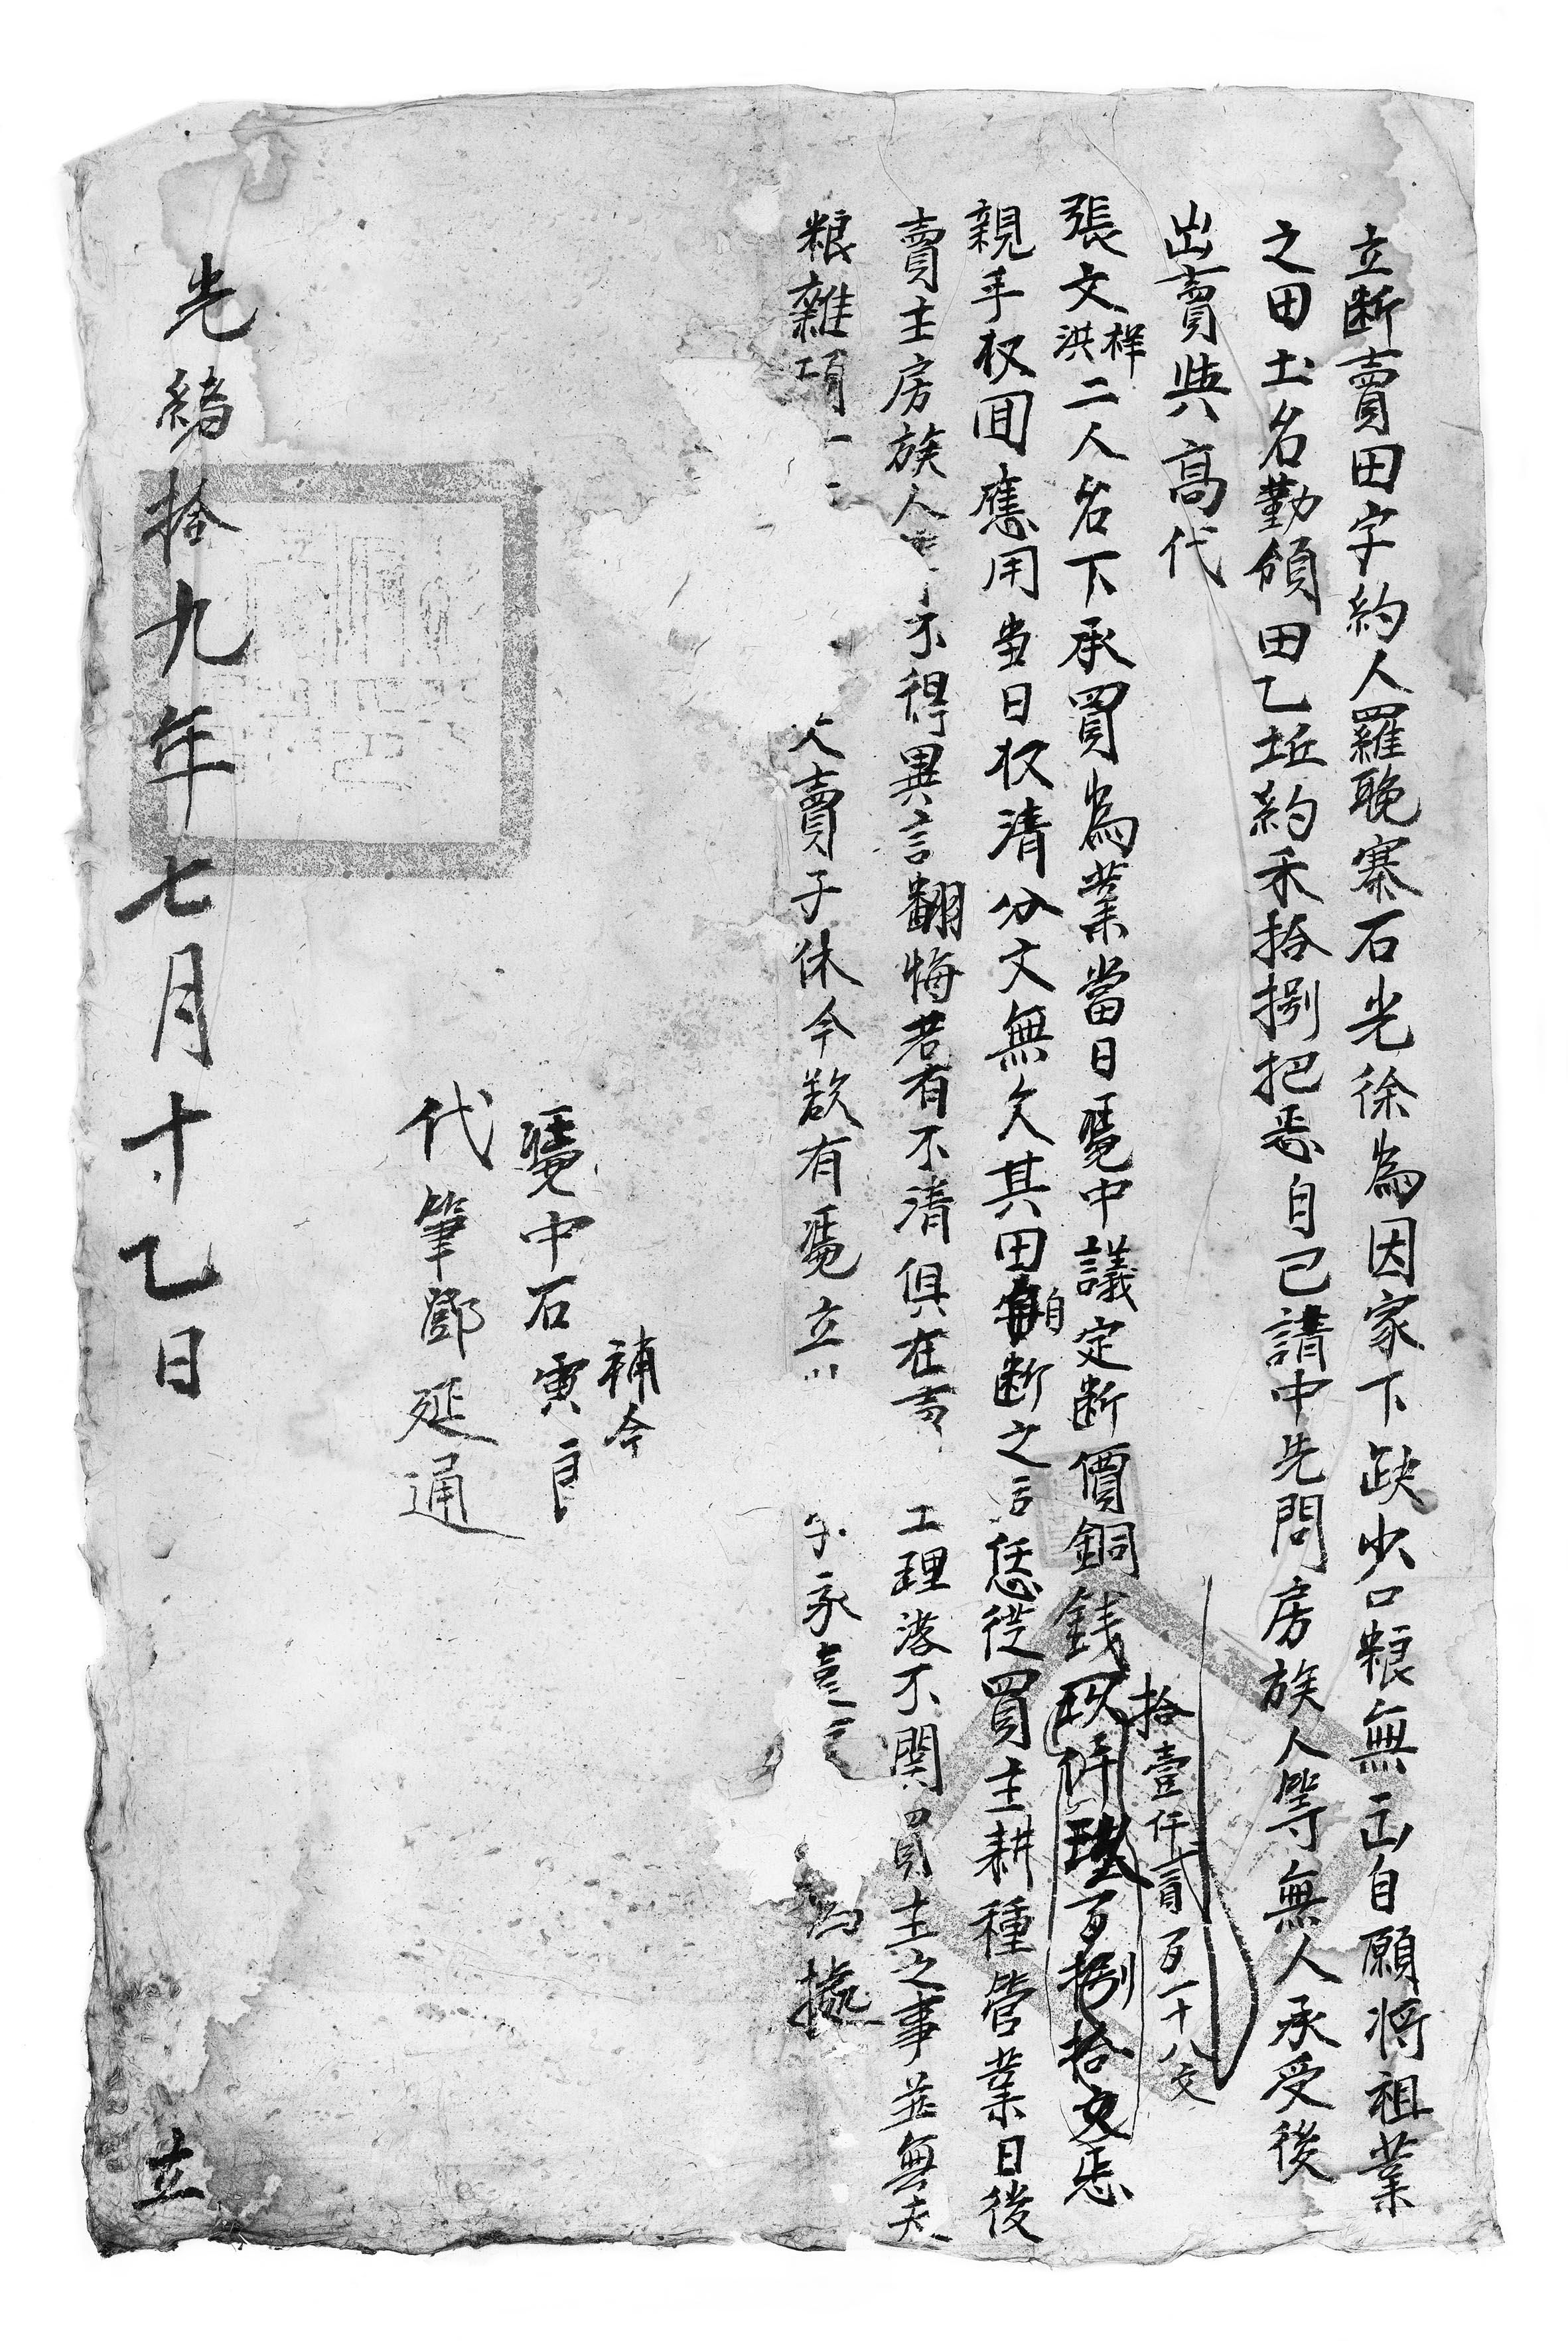 立断賣田字約人羅晚寨石光徐為因家下缺少口粮無出自願将祖業
之田土名勤領田乙坵約禾拾捌把悉自己請中先問房族人等無人承受後
出賣與高代
張文洪樣二人名下承買為業當日凴中議定断價銅錢肆仟 百捌拾文悉
拾壹仟貳百一十八文
親手收囬應用当日收清分文無欠其田自断之 恁從買主耕種管業日後
賣主房族人 不得異言翻悔若有不清俱在 理落不関買主之事並無夫
粮雜項一 欠賣子休今欲有凴立 永遠 為據
凴中石寅補今良
代筆鄧延通
光緒拾九年七月十乙日 立